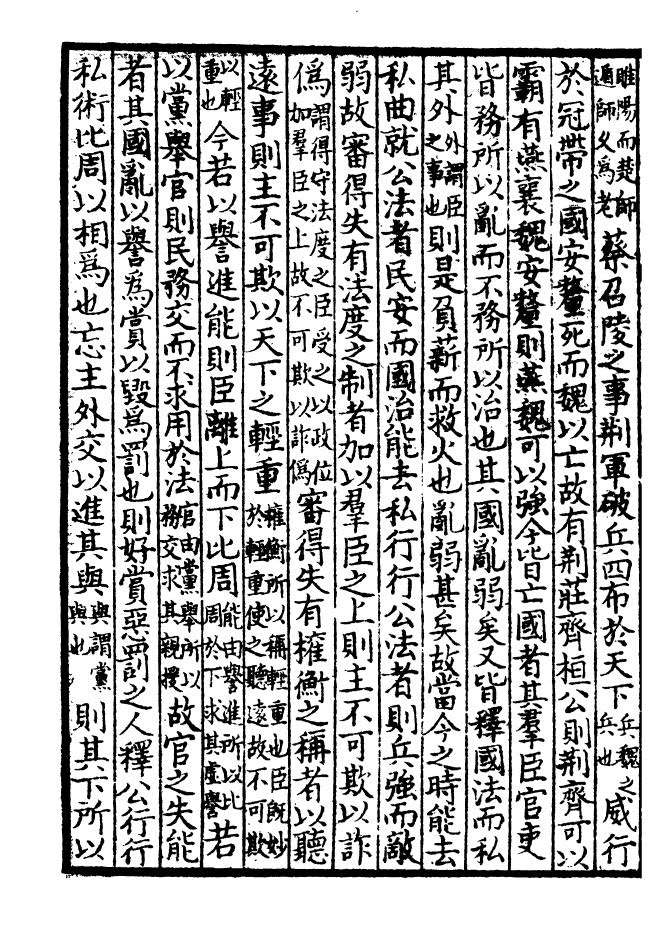 睢陽而楚師遁師久為老蔡召陵之事荆軍破兵四布於天下兵魏之兵也威行
於冠帶之國安釐死而魏以亡故有荆莊齊桓公則荆齊可以
霸有燕襄魏安釐則燕魏可以強今皆亡國者其羣臣官吏
皆務所以亂而不務所以治也其國亂弱矣又皆釋國法而私
其外外謂臣之事也則是負薪而救火也亂弱甚矣故當今之時能去
私曲就公法者民安而國治能去私行行公法者則兵強而敵
弱故審得失有法度之制者加以羣臣之上則主不可欺以詐
僞謂得守法度之臣受之以政位加羣臣之上故不可欺以詐僞審得失有權衡之稱者以聽
遠事則主不可欺以天下之輕重權衡所以稱輕重也臣旣妙於輕重使之聽遠故不可欺
以輕重也今若以譽進能則臣離上而下比周能由譽進所以比周於下求其虛譽若
以黨舉官則民務交而不求用於法官由黨舉所以務交求其親援故官之失能
者其國亂以譽爲賞以毀爲罰也則好賞惡罰之人釋公行行
私術比周以相爲也忘主外交以進其與與謂黨與也則其下所以